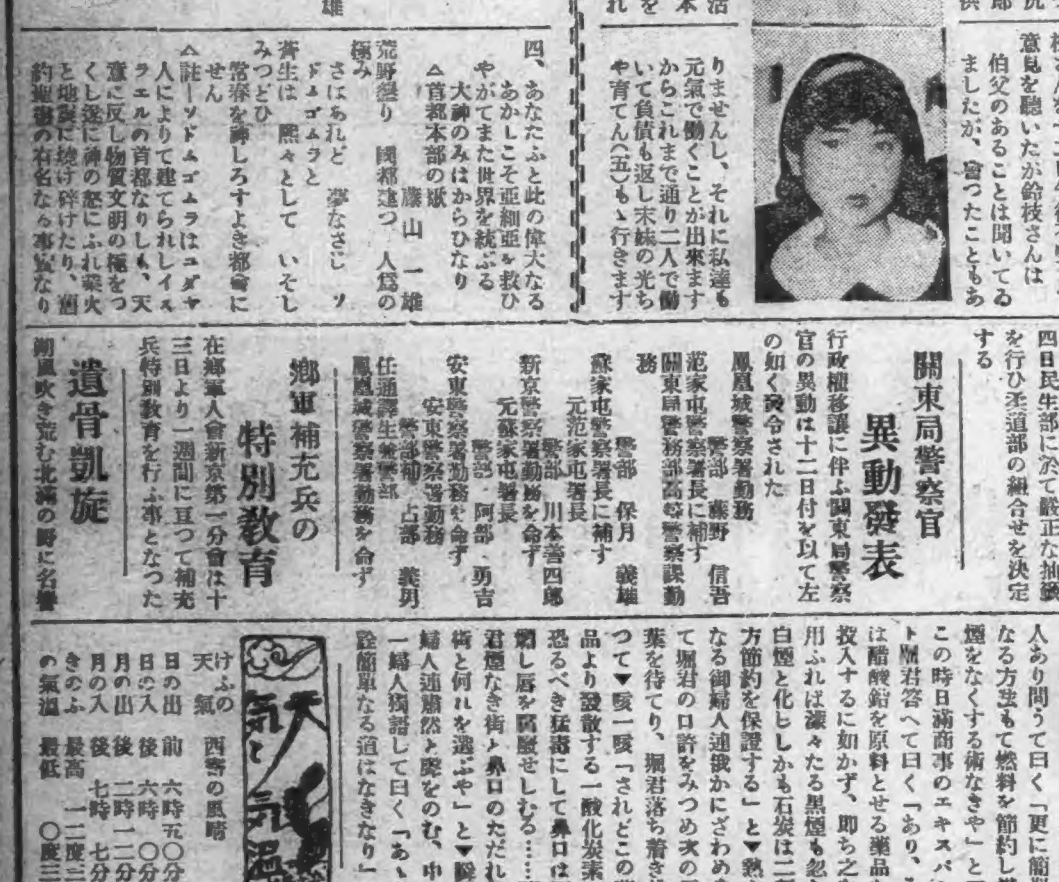 意見を聽いたが鈴枝さんは
伯父のあることは聞いてゐ
ましたが、會つたこともあ
りませんし、それに私達も
元氣で働くことが出來ます
からこれまで通り二人で働
いて負債も返し末妹の光ち
や育てん(五)もゝ行きます
四、あなたふと此の偉大なる
あかしこそ亞細亞を救ひ
やがてまた世界を統ぶる
大神のみはからひなり
△首都本部の歌
藤山一雄
荒野墾り　國都建つ　人爲の
極み
さはあれど　夢なさじ　ソ
ドムゴムラと
蒼生は　熙々として　いそし
みつどひ
常春を神しろすよき都會に
せん
△註―ソドムゴムラはユダヤ
人によりて建てられしイス
ラエルの首都なりしも、天
意に反し物質文明の極をつ
くし遂に神の怒にふれ業火
と地裂に燒け碎けたり、舊
約聖書の有名なる事實なり
四日民生部に於て嚴正な抽籤
を行ひ柔道部の組合せを決定
する
關東局警察官
異動發表
行政權移讓に伴ふ關東局警察
官の異動は十二日付を以て左
の如く發令された
鳳凰城警察署勤務
警部　藤野　信吾
范家屯警察署長に補す
關東局警務部高等警察課勤
務
警部　保月　義雄
蘇家屯警察署長に補す
元范家屯署長
警部　川本善四郎
新京警察署勤務を命ず
元蘇家屯署長
警部　阿部　勇吉
安東警察署勤務を命ず
安東警察署勤務
警部補　占部　義男
任通譯生兼警部
鳳凰城警察署勤務を命ず
鄕軍補充兵の
特別教育
在鄕軍人會新京第一分會は十
三日より一週間に亘つて補充
兵特別教育を行ふ事となつた
遺骨凱旋
朔風吹き荒む北滿の野に名譽
人あり問うて曰く「更に簡
なる方法もて燃料を節約し
煙をなくする術なきや」と
この時日滿商事のエキスパ
ト堀君答へて曰く「あり、
は醋酸鉛を原料とせる藥品
投入するに如かず、卽ち之
用ふれば濛々たる黑煙も忽
白煙と化ししかも石炭は二
方節約を保證する」と▼熱
なる御婦人連俄かにざわめ
て堀君の口許をみつめ次の
葉を待てり、堀君落ち着き
つて▼咳一咳「されどこの
品より發散する一酸化炭素
恐るべき猛毒にして鼻口は
爛し唇を
君煙なき街と鼻口のただれ
術と何れを選ぶや」と▼瞬
婦人連肅然と聲をのむ、中
一婦人獨語して曰く「あゝ
詮簡單なる道はなきなり」
天気と気温
けふの天氣　西寄の風晴
日の出　前　六時五〇分
日の入　後　六時　〇分
月の出　後　二時一二分
月の入　後　七時　七分
きのふ　最高　一二度三
の氣溫　最低　〇度三